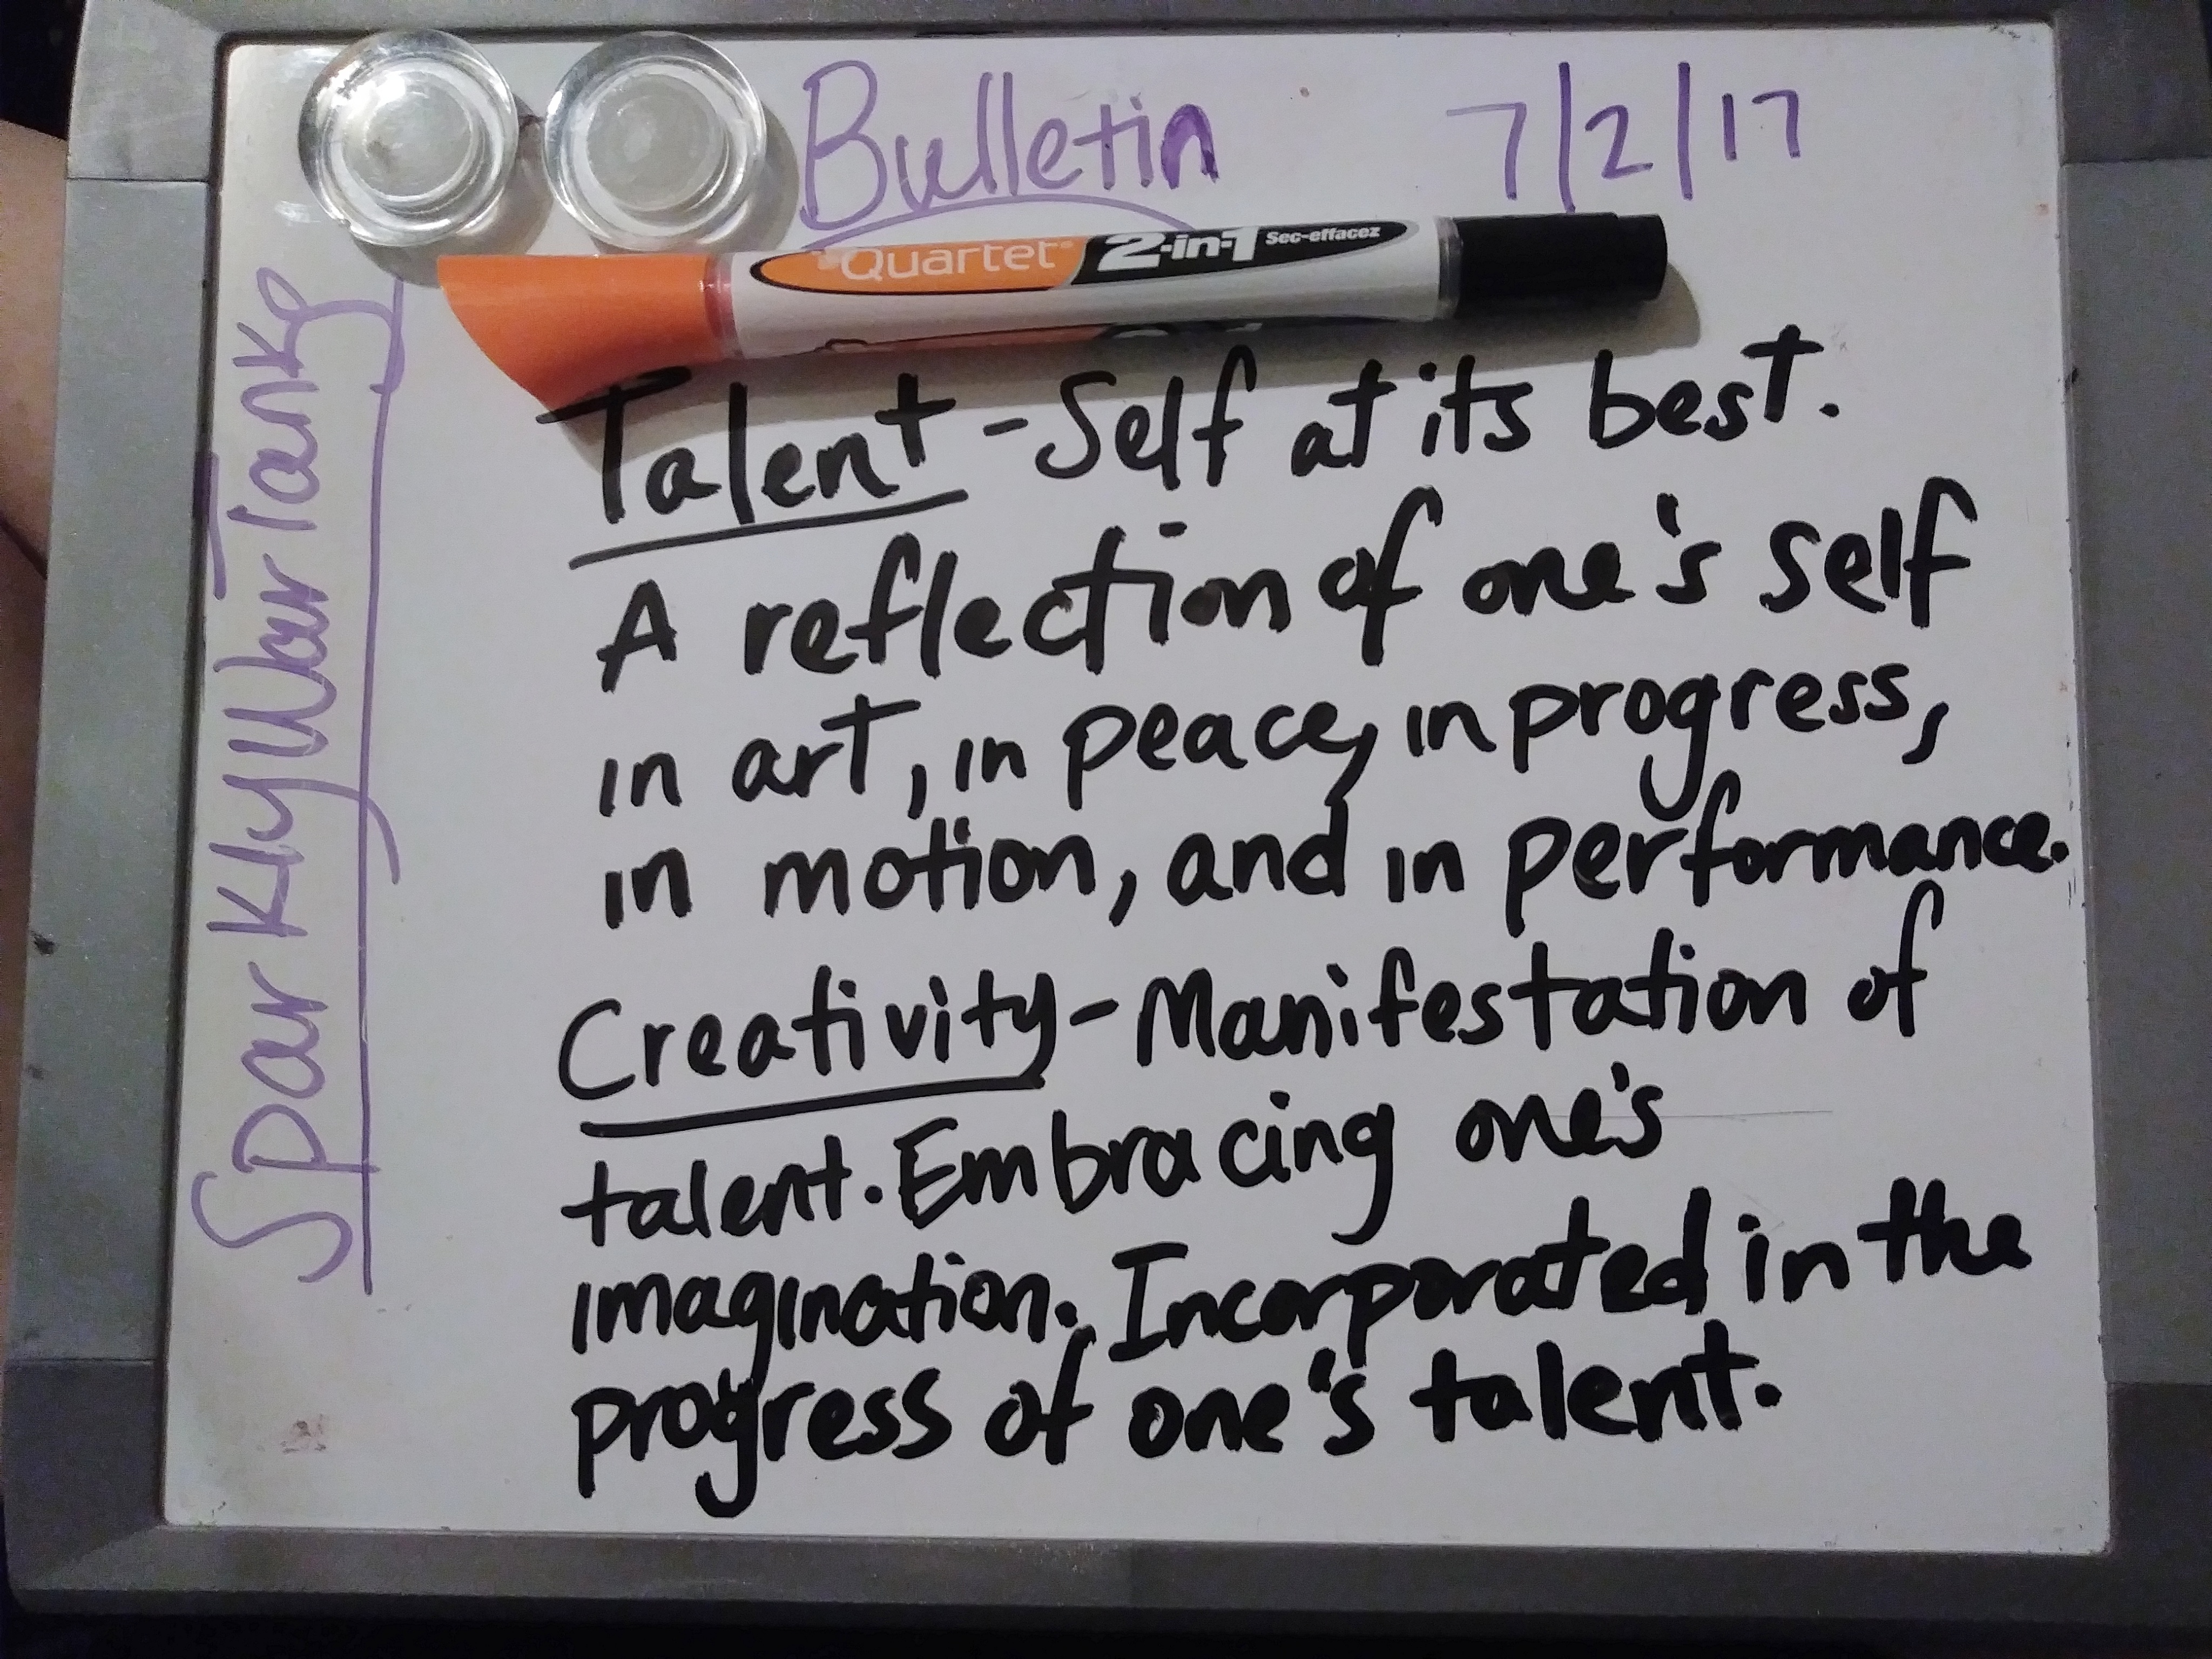 Bulletin 7/2/17
SparklyWarTank
Quartet 2-in-1 Sec-effacez
Talent - Self at its best.
A reflection of one's self
in art, in peace, in progress,
in motion, and in performance.
Creativity - Manifestation of
talent. Embracing one's
imagination. Incorporated in the
progress of one's talent.